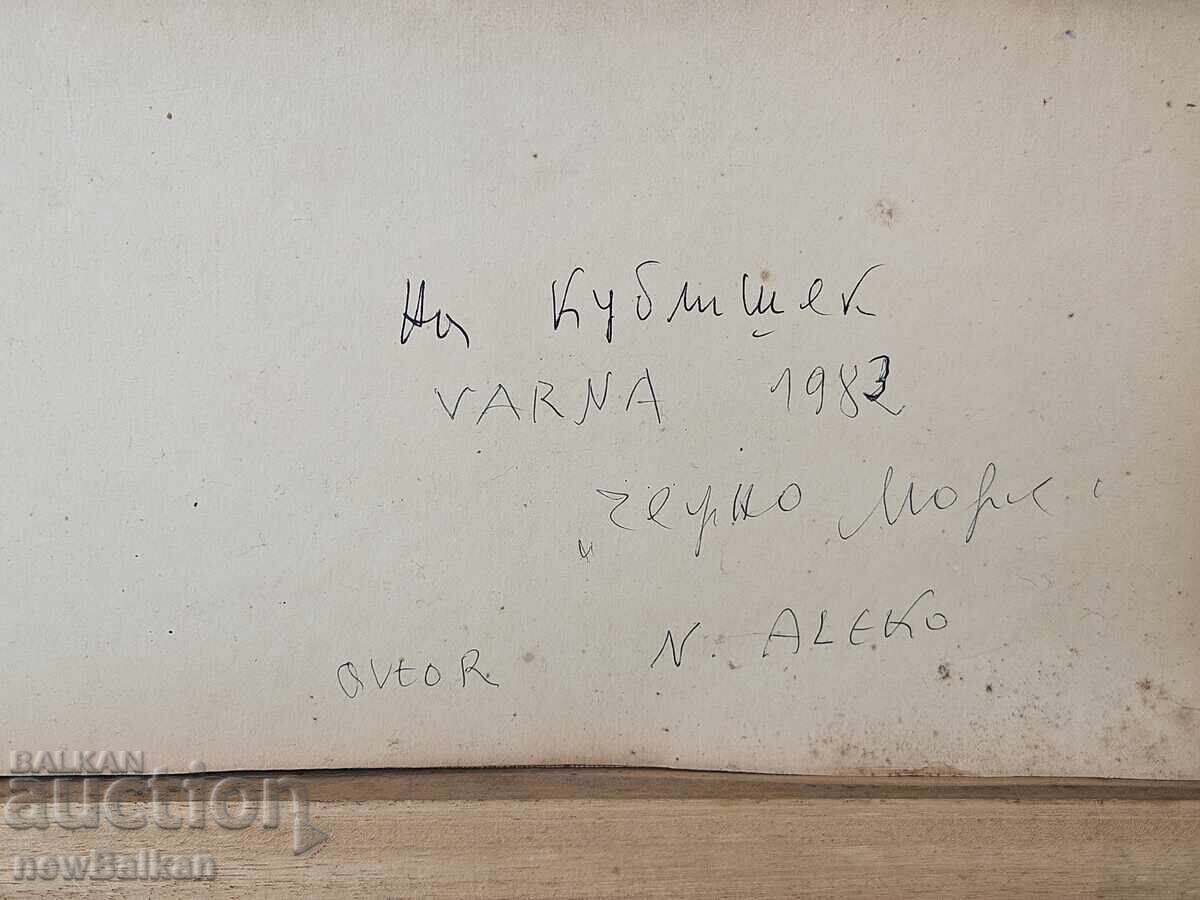 На Кубишек
VARNA 1982
„Черно Море“
avtoR N. ALEKO
BALKAN
auction
newBalkan